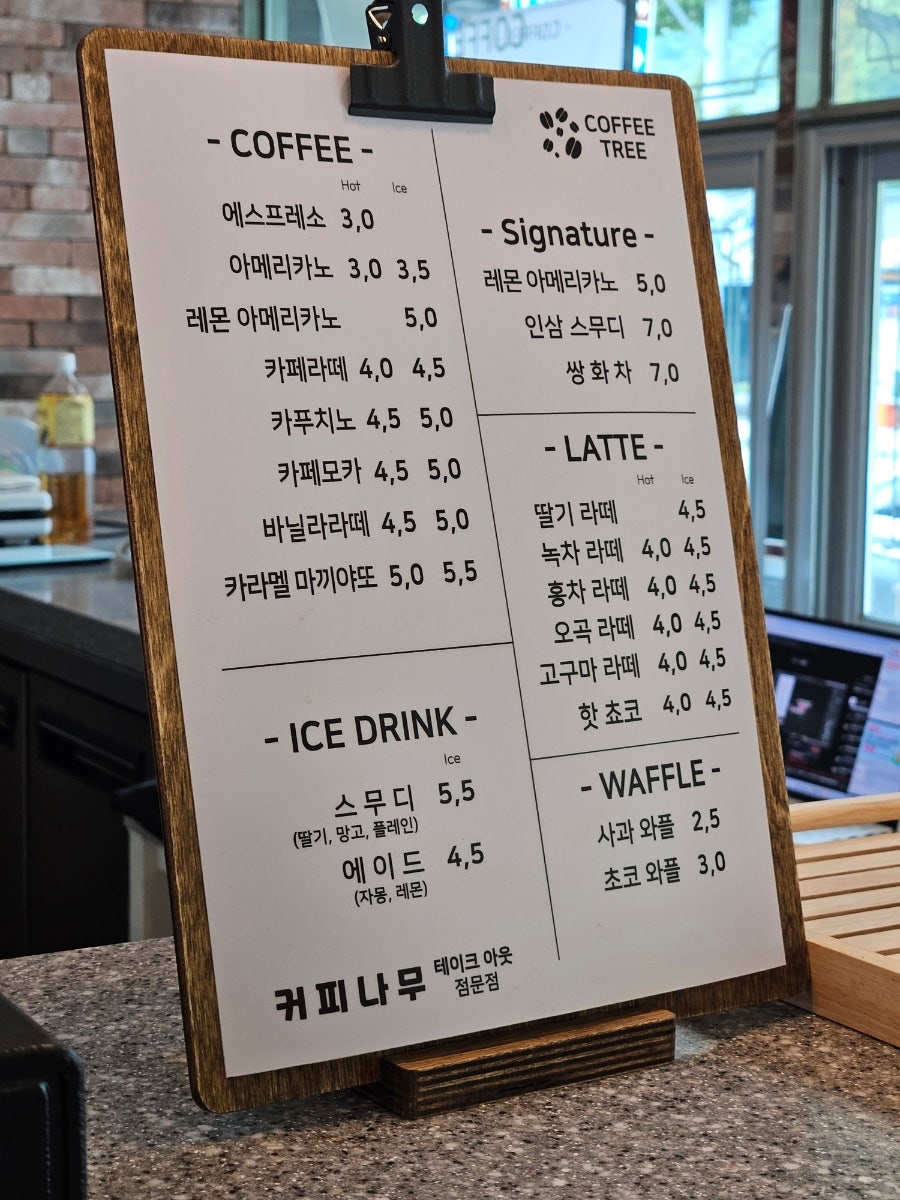 - COFFEE -
Hot Ice
에스프레소 3,0
아메리카노 3,0 3,5
레몬 아메리카노 5,0
카페라떼 4,0 4,5
카푸치노 4,5 5,0
카페모카 4,5 5,0
바닐라라떼 4,5 5,0
카라멜 마끼야또 5,0 5,5
- ICE DRINK -
Ice
스무디 5,5
(딸기, 망고, 플레인)
에이드 4,5
(자몽, 레몬)
커피나무 테이크 아웃
점문점
COFFEE
TREE
- Signature -
레몬 아메리카노 5,0
인삼 스무디 7,0
쌍화차 7,0
- LATTE -
Hot Ice
딸기 라떼 4,5
녹차 라떼 4,0 4,5
홍차 라떼 4,0 4,5
오곡 라떼 4,0 4,5
고구마 라떼 4,0 4,5
핫 쵸코 4,0 4,5
- WAFFLE -
사과 와플 2,5
초코 와플 3,0